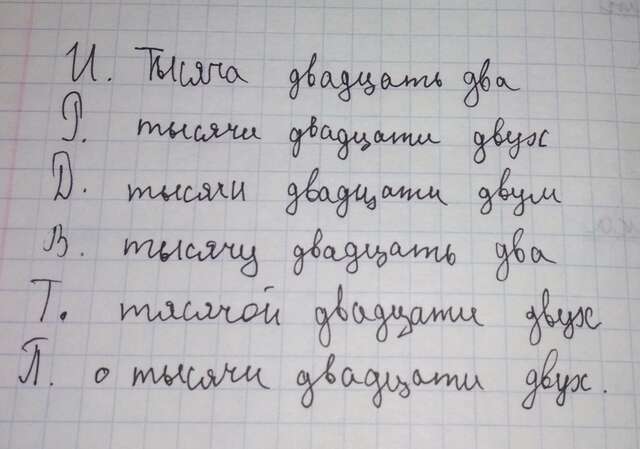 И. Тысяча двадцать два
Р. тысячи двадцати двух
Д. тысячи двадцати двум
В. тысячу двадцать два
Т. тясячой двадцати двух
П. о тысячи двадцати двух.